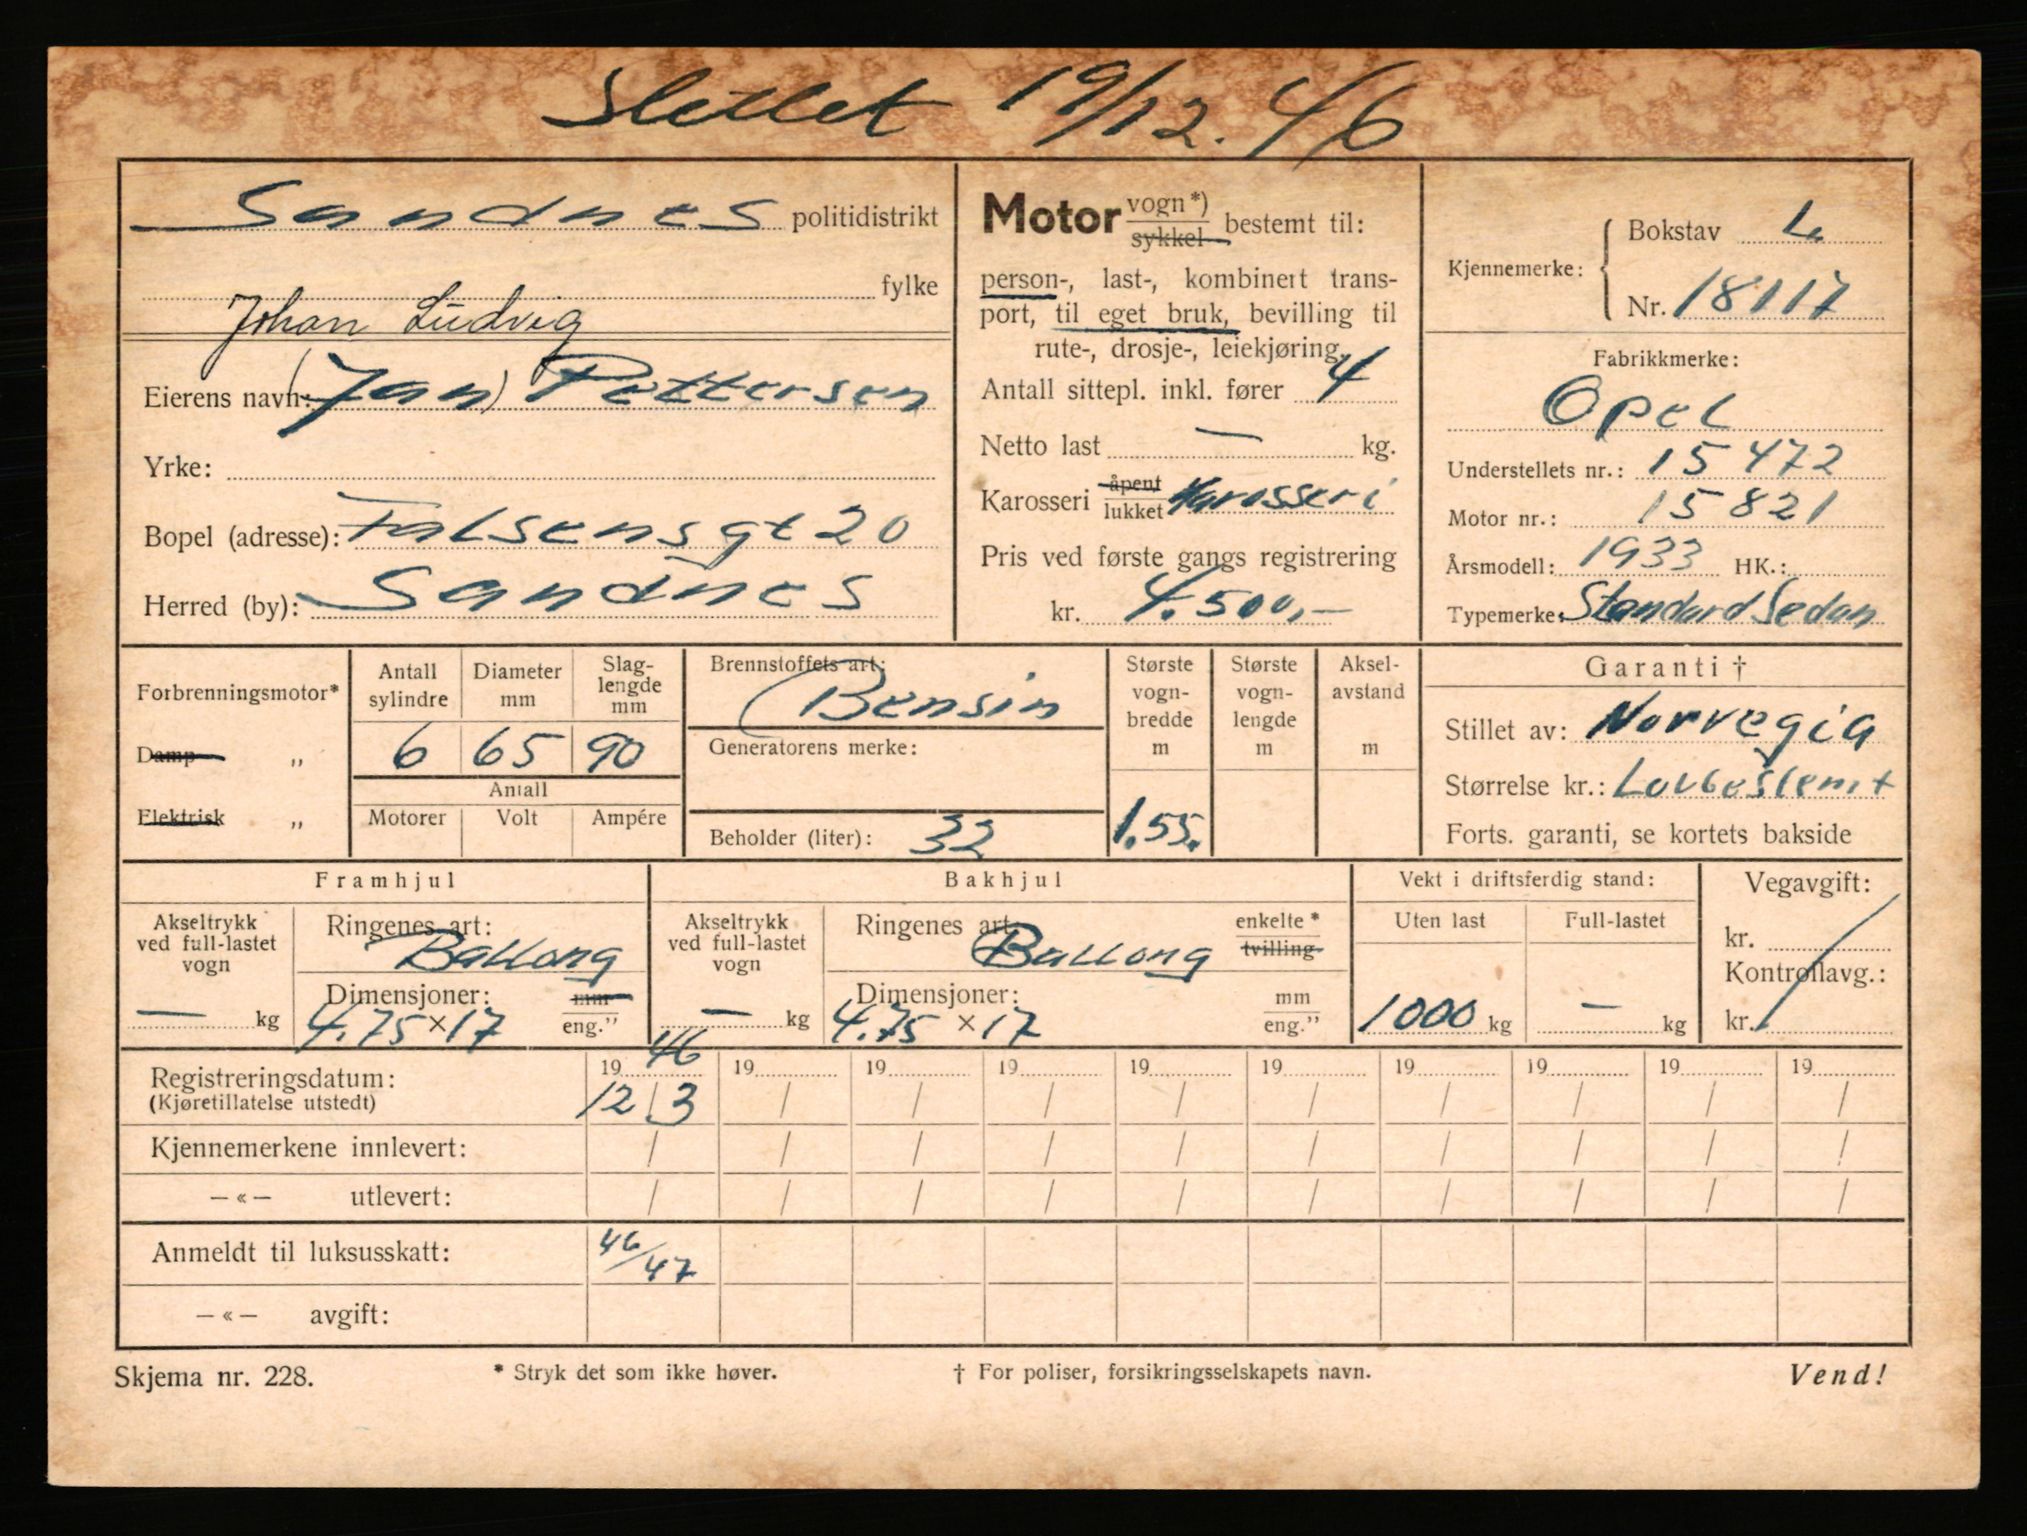 Slettet 19/12.46
Sandnes politidistrikt
fylke
Johan Ludvig
Eierens navn: (Jan) Pettersen
Yrke:
Bopel (adresse): Falsensgt 20
Herred (by): Sandnes
Motor vogn*) sykkel bestemt til:
person-, last-, kombinert trans-
port, til eget bruk, bevilling til
rute-, drosje-, leiekjøring.
Antall sittepl. inkl. fører 4
Netto last — kg.
Karosseri åpent lukket Karosseri
Pris ved første gangs registrering
kr. 4.500,-
Kjennemerke: Bokstav L.
Nr. 18117
Fabrikkmerke:
Opel
Understellets nr.: 15472
Motor nr.: 15821
Årsmodell: 1933 HK.:
Typemerke: Standard Sedan
Forbrenningsmotor*
Damp „
Elektrisk „
Antall sylindre Diameter mm Slag-lengde mm
6 65 90
Antall
Motorer Volt Ampére
Brennstoffets art:
Bensin
Generatorens merke:
Beholder (liter): 32
Største vogn-bredde m Største vogn-lengde m Aksel-avstand m
1.55.
Garanti †
Stillet av: Norvegia
Størrelse kr.: Lovbestemt
Forts. garanti, se kortets bakside
Framhjul
Akseltrykk ved full-lastet vogn
— kg
Ringenes art:
Ballong
Dimensjoner: mm
4.75 × 17 eng.”
Bakhjul
Akseltrykk ved full-lastet vogn
— kg
Ringenes art: enkelte *
Ballong tvilling
Dimensjoner: mm
4.75 × 17 eng.”
Vekt i driftsferdig stand:
Uten last Full-lastet
1000 kg — kg
Vegavgift:
kr.
Kontrollavg.:
kr.
Registreringsdatum: 19 46 19 19 19 19 19 19 19 19 19
(Kjøretillatelse utstedt) 12/3 / / / / / / / / /
Kjennemerkene innlevert: / / / / / / / / / /
—«— utlevert: / / / / / / / / / /
Anmeldt til luksusskatt: 46/47
—«— avgift:
Skjema nr. 228. * Stryk det som ikke høver. † For poliser, forsikringsselskapets navn. Vend!